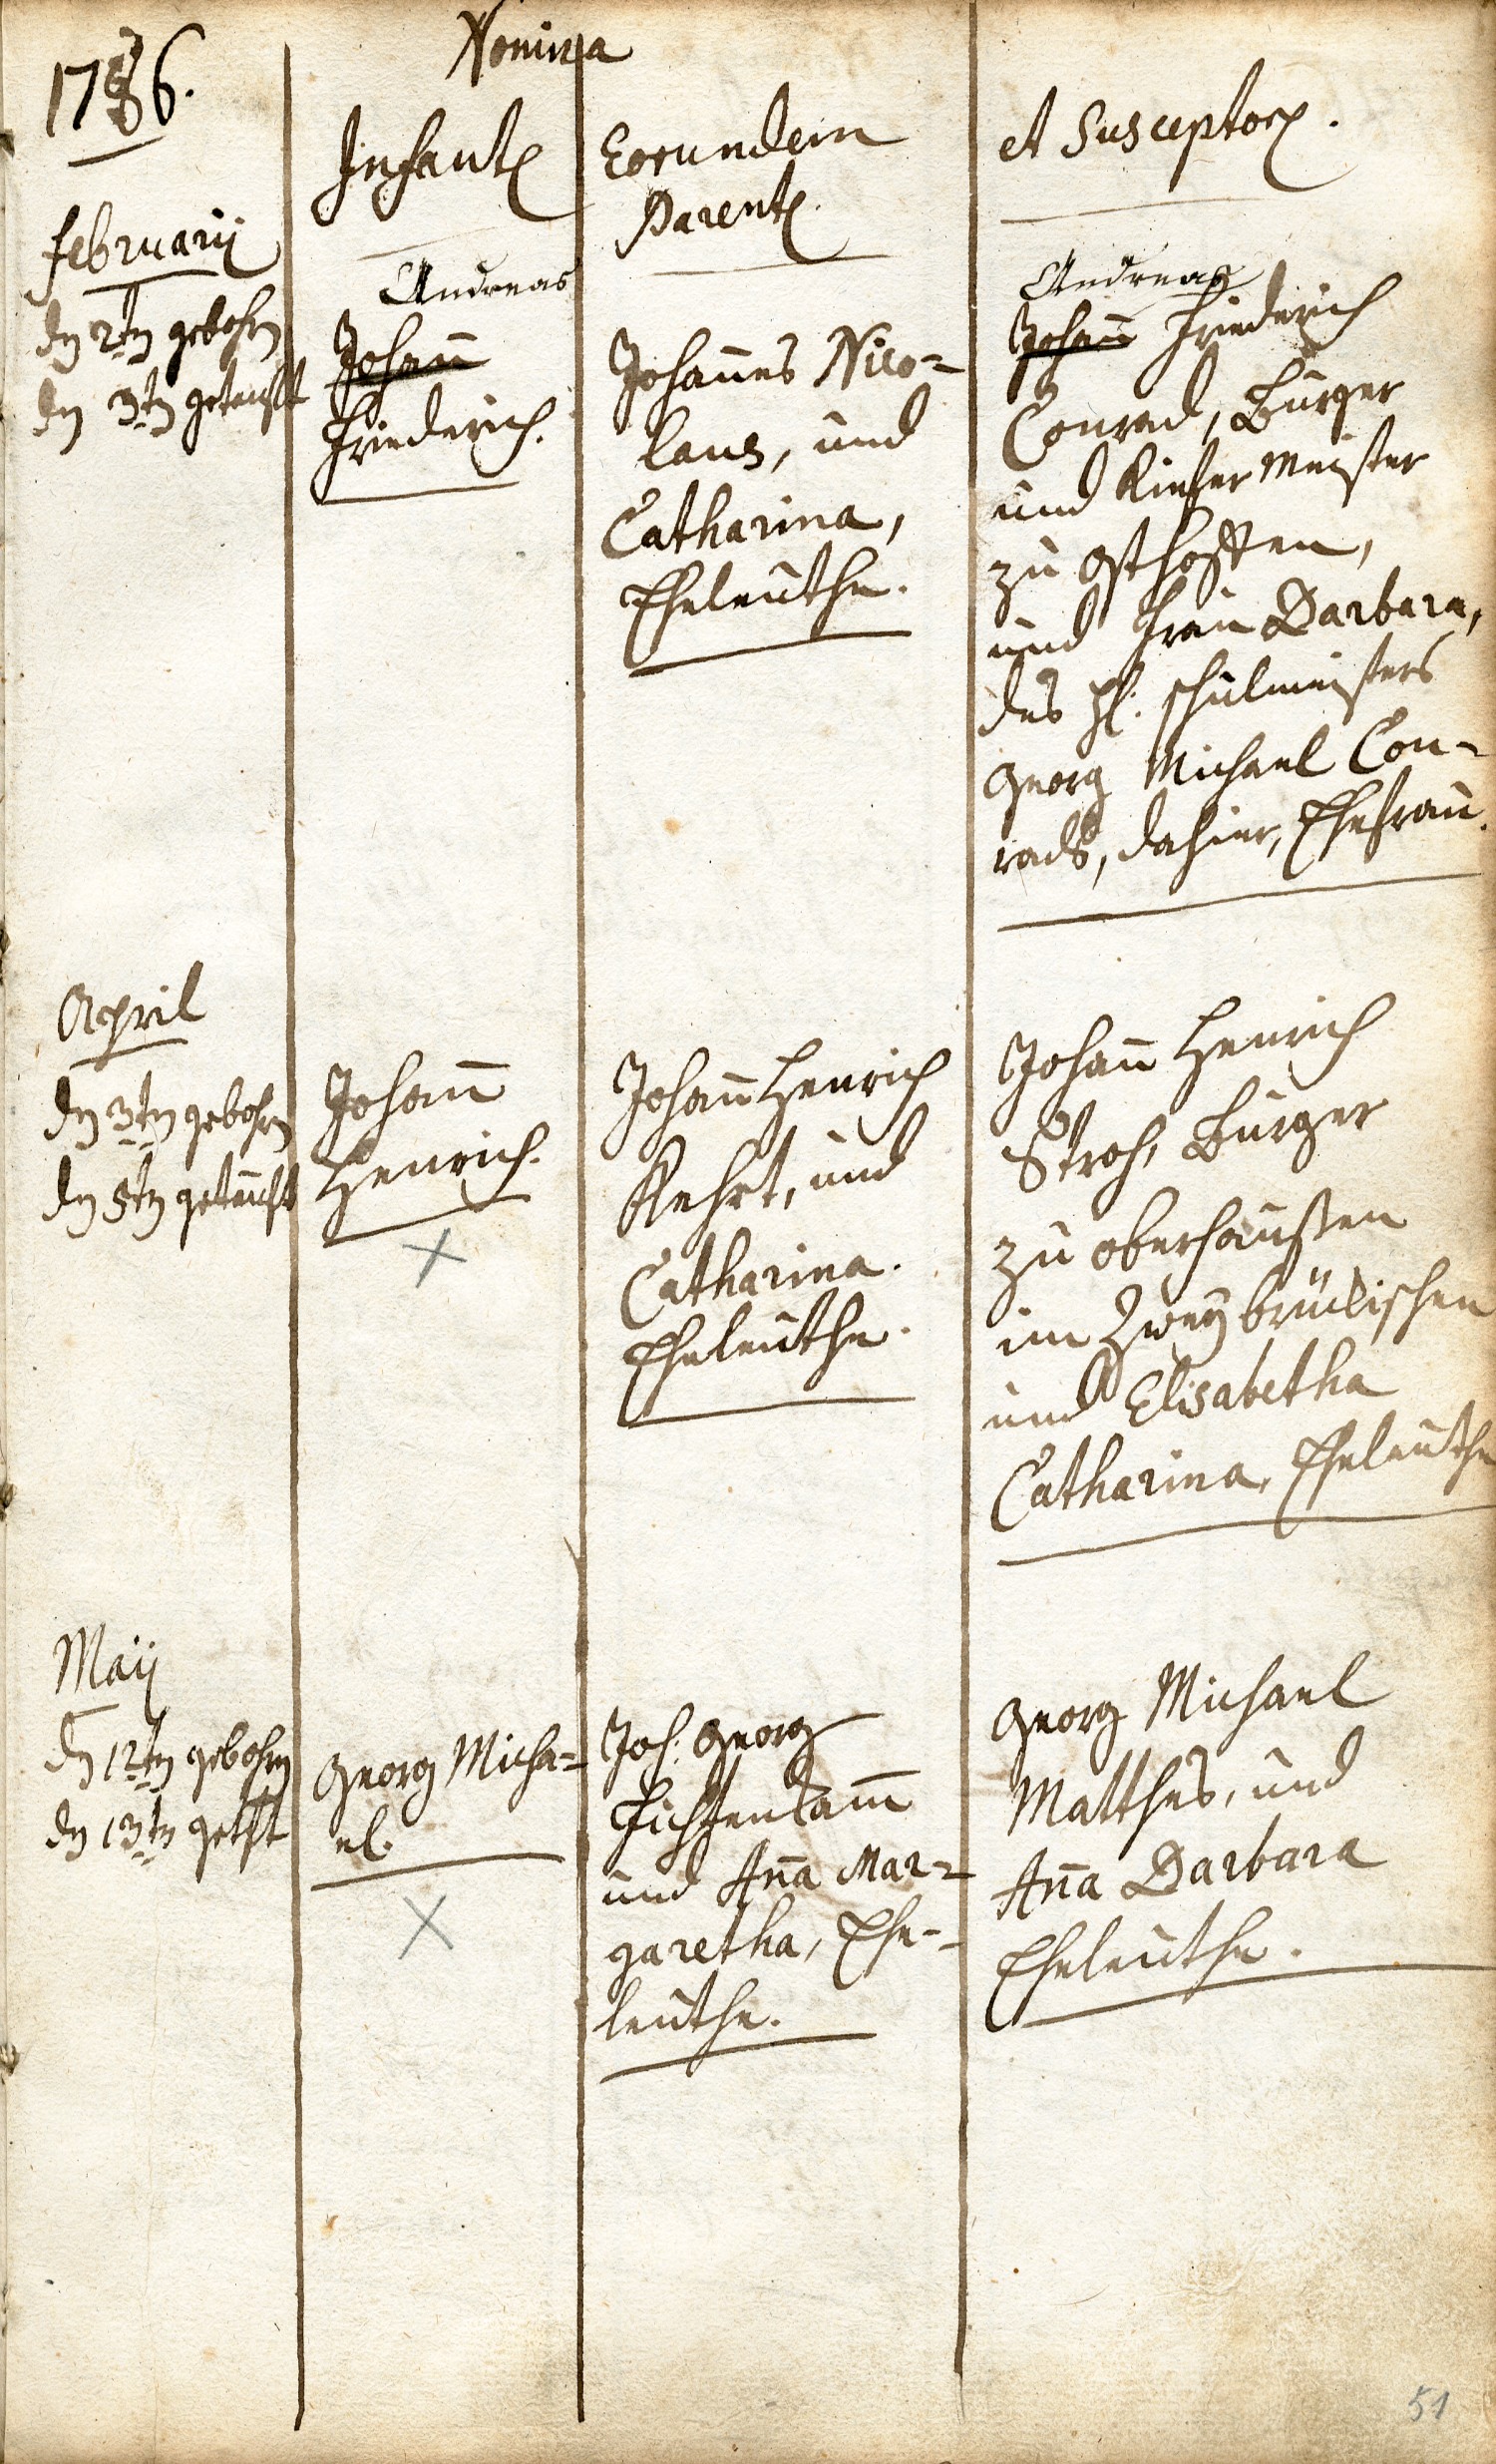 Nomina
1786.
Infant.
Eorundem
Parent.
et Susceptor.
Februarij
den 2ten gebohren
den 3ten getaufft
Andreas
Johann
Friederich.
Johannes Nico-
laus, und
Catharina,
Eheleuthe.
Andreas
Johann Friederich
Conrad, Burger
und Kiefer Meister
zu Osthoffen,
und Frau Barbara,
des H. Schulmeisters
Georg Michael Con-
rads, dahier, Ehefrau.
April
den 3ten gebohren
den 5ten getaufft
Johann
Henrich.
Johann Henrich
Kehrt, und
Catharina.
Eheleuthe.
Johann Henrich
Stroh, Burger
zu oberhaußen
im Zweybrückischen
und Elisabetha
Catharina, Eheleuthe
Maij
den 12ten gebohren
den 13ten getft
Georg Micha-
el.
Joh. Georg
Fichtenkamm
und Anna Mar-
garetha, Ehe-
leuthe.
Georg Michael
Matthes, und
Anna Barbara
Eheleuthe.
51